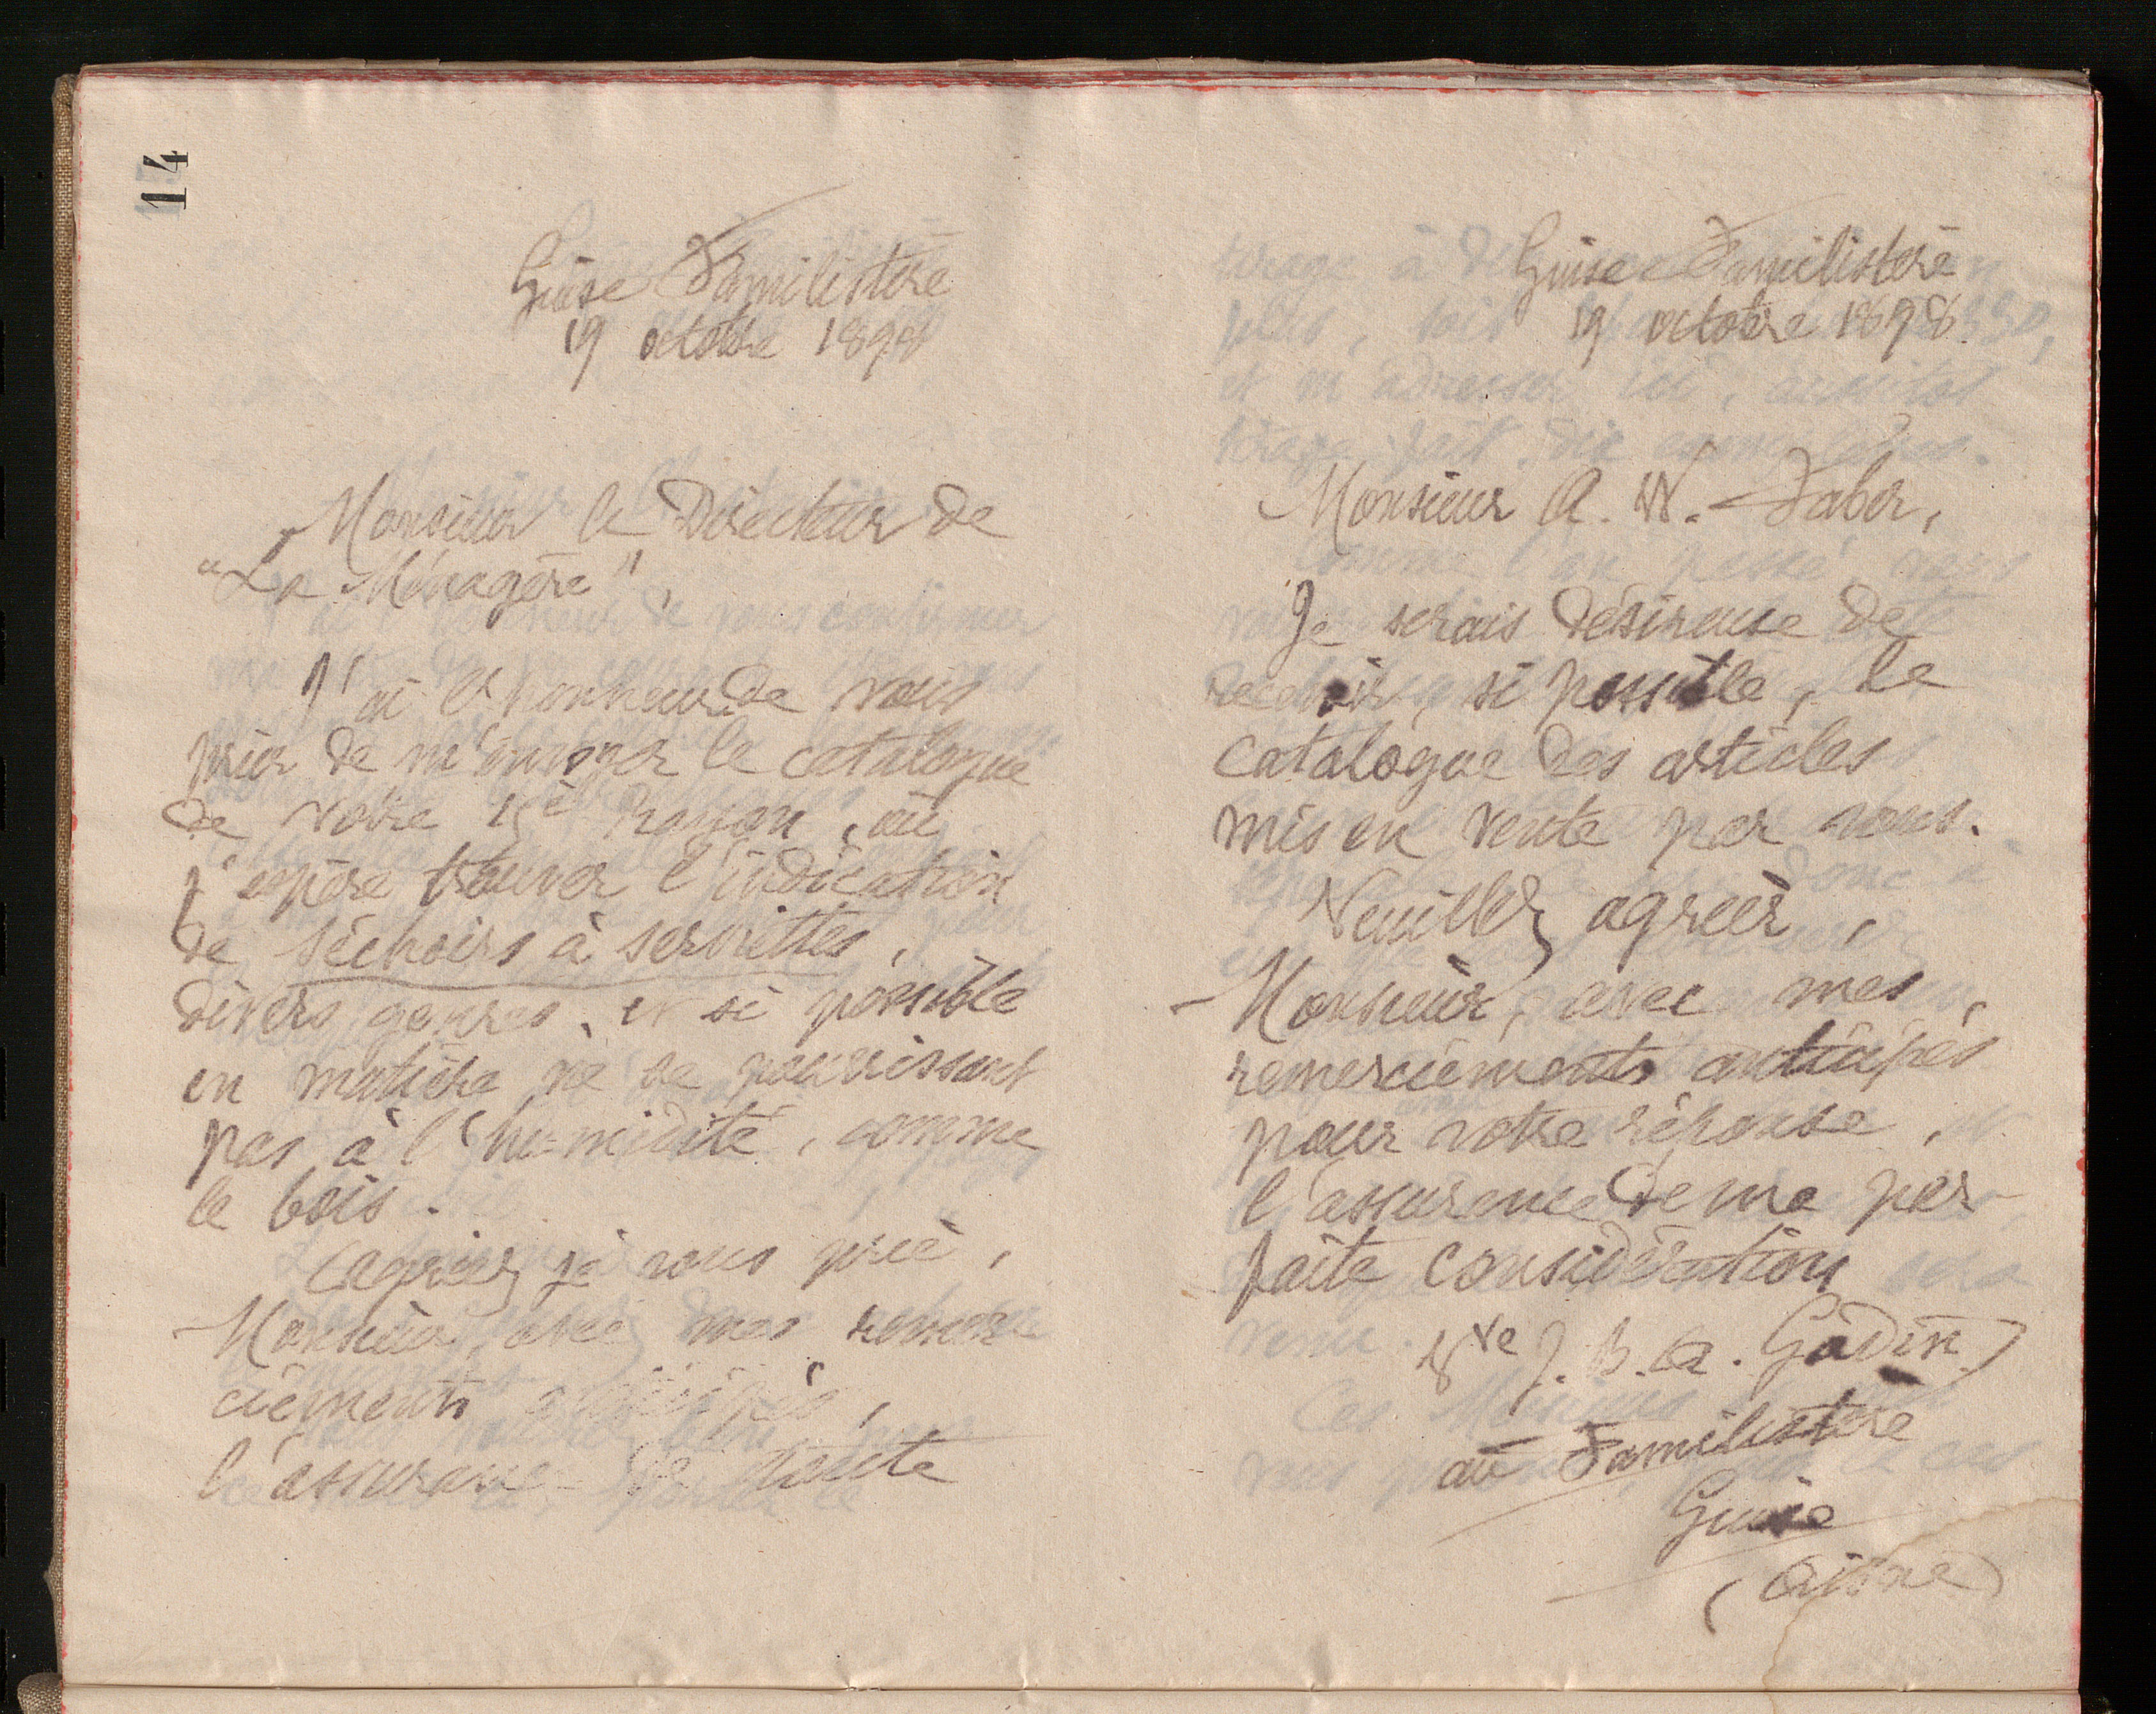 14
Guise Familistère
19 octobre 1898
Monsieur le Directeur de
"La Ménagère",
J'ai l'honneur de vous
prier de m'envoyer le catalogue
de votre 15e rayon, où
j'espère trouver l'indication
de séchoirs à serviettes,
divers genres, et si possible
en matière ne se pourrissant
pas à l'hu-midité, comme
le bois.
Agréez, je vous prie,
Monsieur, avec mes remer-
ciements anticipés,
l'assurance de toute
Guise Familistère
19 octobre 1898.
Monsieur A. W. Faber,
Je serais désireuse de
recevoir, si possible, le
catalogue des articles
mis en vente par vous.
Veuillez agréer,
Monsieur, avec mes
remerciements anticipés
pour votre réponse,
l'assurance de ma par-
faite considération
Vve J. B. A. Godin
au Familistère
Guise
(Aisne)